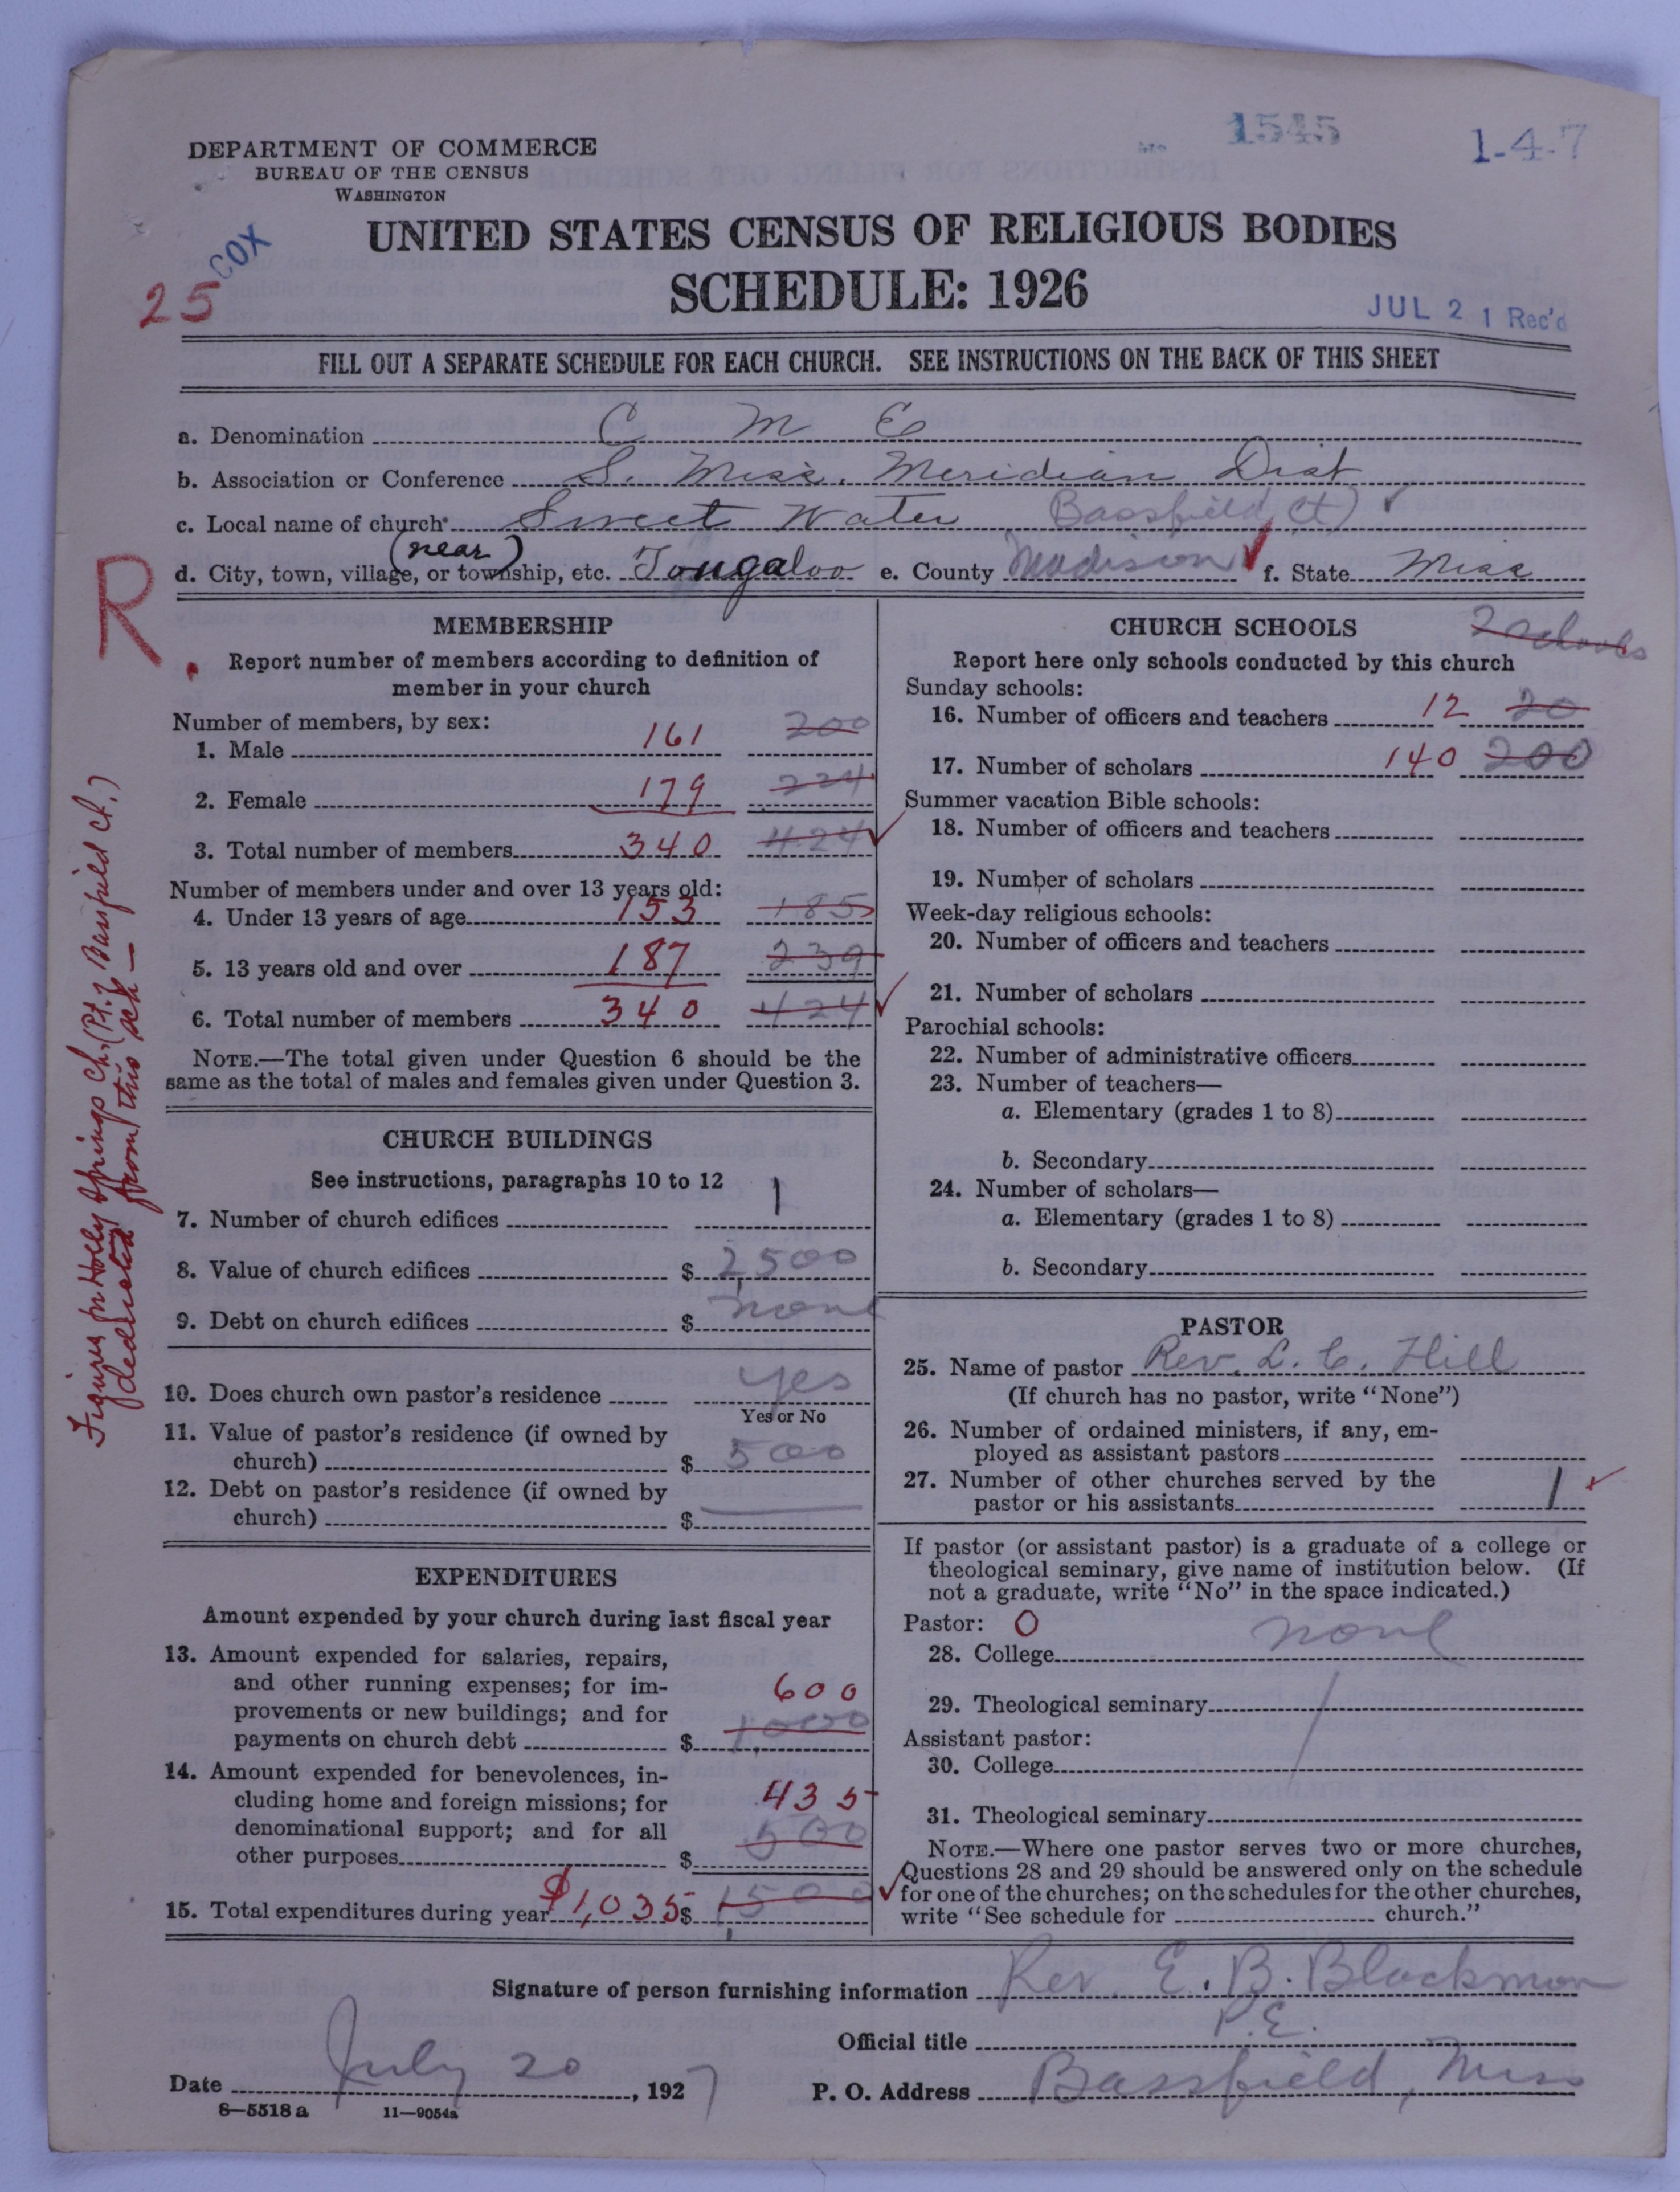 1545
1-4-7
DEPARTMENT OF COMMERCE
BUREAU OF THE CENSUS
WASHINGTON
COX
25
UNITED STATES CENSUS OF RELIGIOUS BODIES
SCHEDULE: 1926
JUL 21 Rec'd
FILL OUT A SEPARATE SCHEDULE FOR EACH CHURCH. SEE INSTRUCTIONS ON THE BACK OF THIS SHEET
a. Denomination C M E
b. Association or Conference S. Miss. Meridian Dist
c. Local name of church Sweet Water Bassfield Ct)
(near)
d. City, town, village, or township, etc. Tougaloo e. County Madison f. State Miss
R.
Figures for Holly Springs Ch. (Pt. of Bassfield Ct.)
deducted from this sch—
MEMBERSHIP
Report number of members according to definition of
member in your church
Number of members, by sex:
1. Male 161 200
2. Female 179 224
3. Total number of members 340 424
Number of members under and over 13 years old:
4. Under 13 years of age 153 185
5. 13 years old and over 187 239
6. Total number of members 340 424
NOTE.—The total given under Question 6 should be the
same as the total of males and females given under Question 3.
CHURCH BUILDINGS
See instructions, paragraphs 10 to 12
7. Number of church edifices 1
8. Value of church edifices $ 2,500
9. Debt on church edifices $ none
10. Does church own pastor's residence yes
Yes or No
11. Value of pastor's residence (if owned by
church) $ 500
12. Debt on pastor's residence (if owned by
church) $
EXPENDITURES
Amount expended by your church during last fiscal year
13. Amount expended for salaries, repairs,
and other running expenses; for im-
provements or new buildings; and for
payments on church debt $ 600 1,000
14. Amount expended for benevolences, in-
cluding home and foreign missions; for
denominational support; and for all
other purposes $ 435 500
15. Total expenditures during year $1,035 $ 1500
CHURCH SCHOOLS 2 schools
Report here only schools conducted by this church
Sunday schools:
16. Number of officers and teachers 12 20
17. Number of scholars 140 200
Summer vacation Bible schools:
18. Number of officers and teachers
19. Number of scholars
Week-day religious schools:
20. Number of officers and teachers
21. Number of scholars
Parochial schools:
22. Number of administrative officers
23. Number of teachers—
a. Elementary (grades 1 to 8)
b. Secondary
24. Number of scholars—
a. Elementary (grades 1 to 8)
b. Secondary
PASTOR
25. Name of pastor Rev. L. C. Hill
(If church has no pastor, write "None")
26. Number of ordained ministers, if any, em-
ployed as assistant pastors
27. Number of other churches served by the
pastor or his assistants 1
If pastor (or assistant pastor) is a graduate of a college or
theological seminary, give name of institution below. (If
not a graduate, write "No" in the space indicated.)
Pastor: 0
28. College none
29. Theological seminary
Assistant pastor:
30. College
31. Theological seminary
NOTE.—Where one pastor serves two or more churches,
Questions 28 and 29 should be answered only on the schedule
for one of the churches; on the schedules for the other churches,
write "See schedule for church."
Signature of person furnishing information Rev. E. B. Blackmon
Official title P.E.
Date July 20, 1927 P. O. Address Bassfield, Miss
8—5518 a 11—9054a